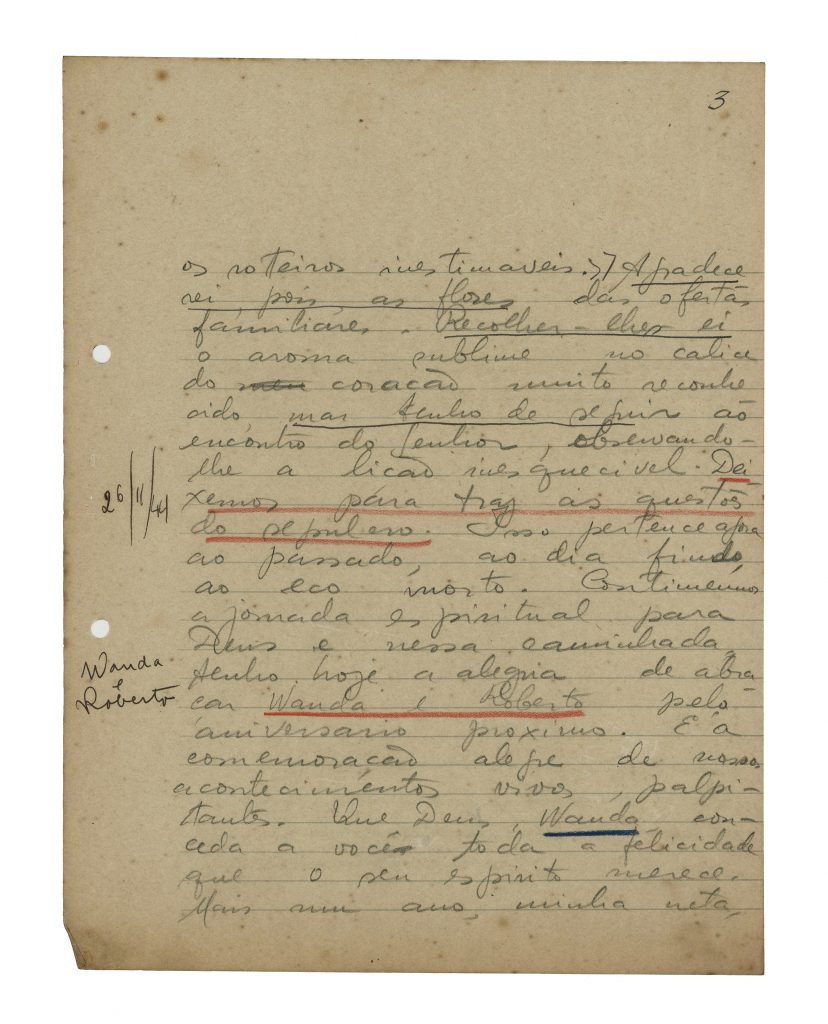 3
os roteiros inestimaveis.>> Agradece
rei, pois, as flores das ofertas
familiares. Recolher-lhes ei
o aroma sublime no calice
do meu coração muito reconhe
cido mas tenho de seguir ao
encontro do Senhor, observando-
lhe a lição inesquecivel. Dei
xemos para traz as questões
do sepulcro. Isso pertence agora
ao passado, ao dia findo,
ao eco morto. Continuemos
a jornada espiritual para
Deus e nessa caminhada,
tenho hoje a alegria de abra
car Wanda e Roberto pelo
aniversario proximo. É a
comemoração alegre de nossos
acontecimentos vivos, palpi-
tantes. Que Deus, Wanda, con-
ceda a você toda a felicidade
que o seu espirito merece.
Mais um ano, minha neta,
26/11/44
Wanda
e
Roberto